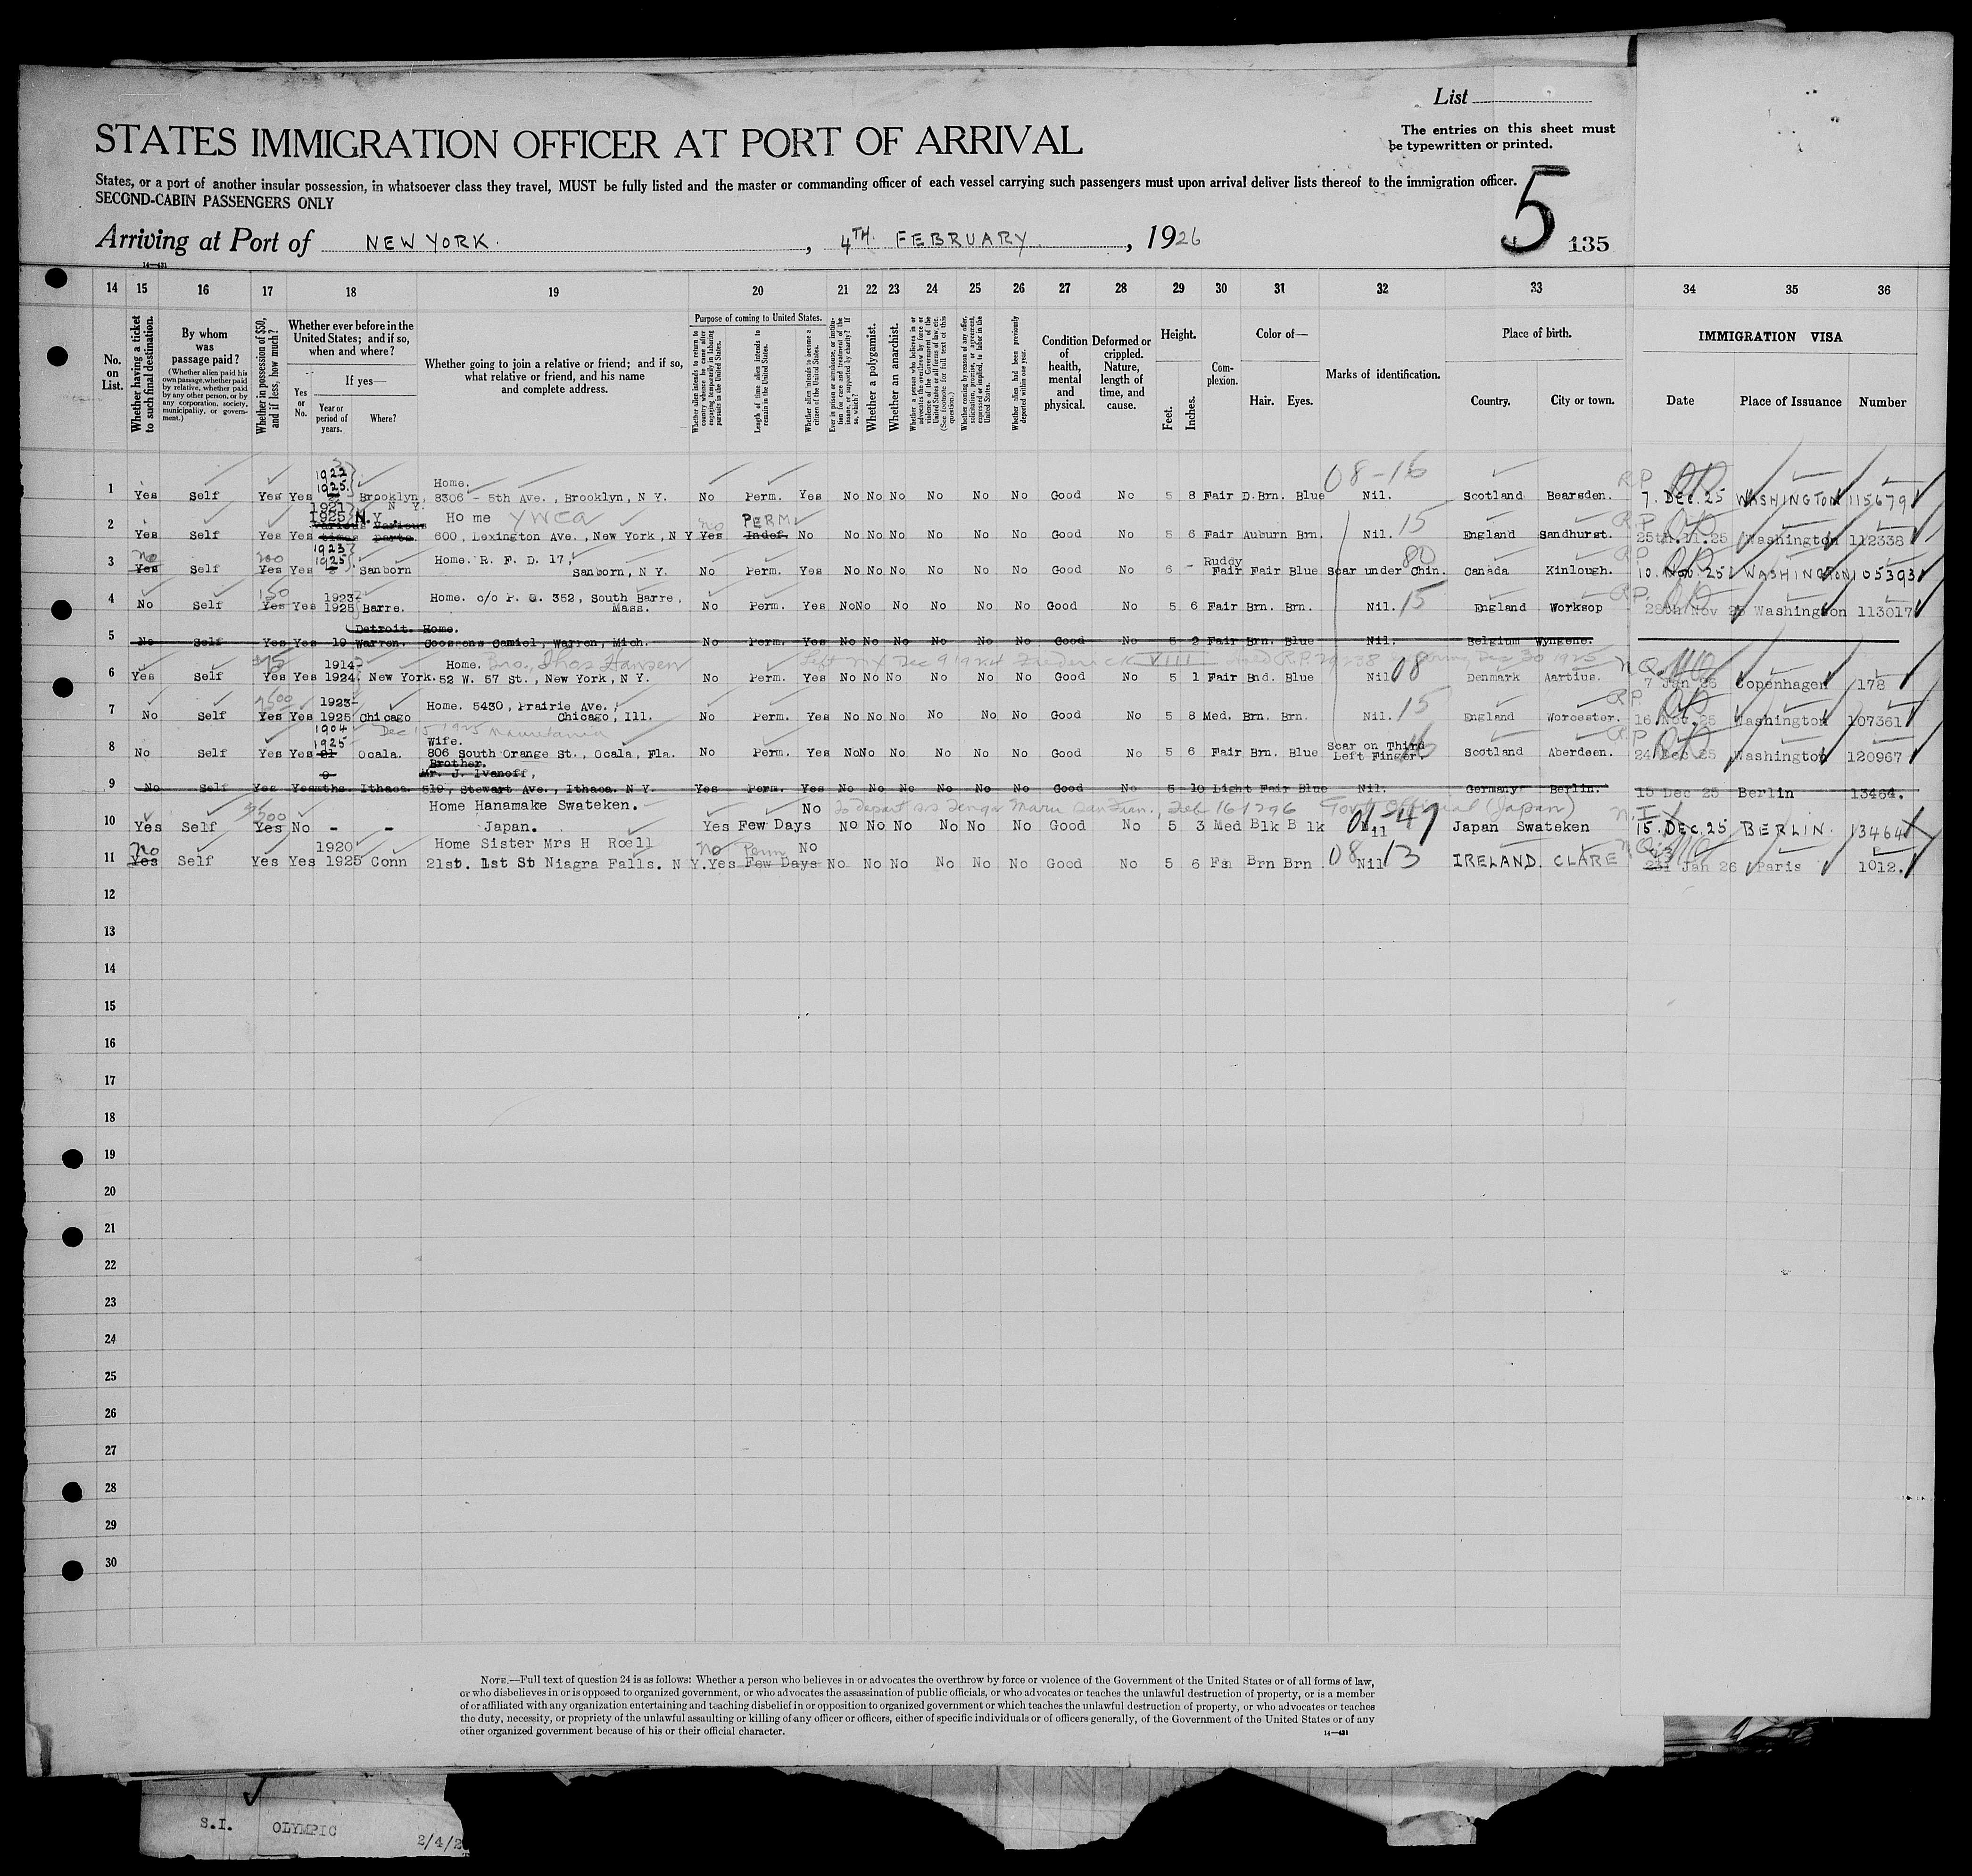 List
STATES IMMIGRATION OFFICER AT PORT OF ARRIVAL
The entries on this sheet must
be typewritten or printed.
States, or a port of another insular possession, in whatsoever class they travel, MUST be fully listed and the master or commanding officer of each vessel carrying such passengers must upon arrival deliver lists thereof to the immigration officer.
SECOND-CABIN PASSENGERS ONLY
5
Arriving at Port of NEW YORK. , 4TH. FEBRUARY , 1926
135
14—431
14 15 16 17 18 19 20 21 22 23 24 25 26 27 28 29 30 31 32 33 34 35 36
No. on List.
Whether having a ticket to such final destination.
By whom was passage paid?
(Whether alien paid his own passage, whether paid by relative, whether paid by any other person, or by any corporation, society, municipality, or government.)
Whether in possession of $50, and if less, how much?
Whether ever before in the United States; and if so, when and where?
Yes or No.
If yes—
Year or period of years.
Where?
Whether going to join a relative or friend; and if so, what relative or friend, and his name and complete address.
Purpose of coming to United States.
Whether alien intends to return to country whence he came after engaging temporarily in laboring pursuits in the United States.
Length of time alien intends to remain in the United States.
Whether alien intends to become a citizen of the United States.
Ever in prison or almshouse, or institution for care and treatment of the insane, or supported by charity? If so, which?
Whether a polygamist.
Whether an anarchist.
Whether a person who believes in or advocates the overthrow by force or violence of the Government of the United States or all forms of law, etc. (See footnote for full text of this question.)
Whether coming by reason of any offer, solicitation, promise, or agreement, expressed or implied, to labor in the United States.
Whether alien had been previously deported within one year.
Condition of health, mental and physical.
Deformed or crippled. Nature, length of time, and cause.
Height.
Feet. Inches.
Complexion.
Color of—
Hair. Eyes.
Marks of identification.
Place of birth.
Country. City or town.
IMMIGRATION VISA
Date Place of Issuance Number
1922
1925
08-16
R.P
Home.
1 Yes Self Yes Yes Brooklyn, N Y. 8306 - 5th Ave., Brooklyn, N Y. No Perm. Yes No No No No No No Good No 5 8 Fair D.Brn. Blue Nil. Scotland Bearsden. 7. DEC. 25 WASHINGTON 115679
1921
1925 N.Y. Home YWCA no PERM 15 R.P
2 Yes Self Yes Yes Various times Various parts 600, Lexington Ave., New York, N Y Yes Indef. No No No No No No No Good No 5 6 Fair Auburn Brn. Nil. England Sandhurst. 25th. 11.25 Washington 112338
No 200 1923
1925 Home. R. F. D. 17, Ruddy 80
3 Yes Self Yes Yes Sanborn Sanborn, N Y. No Perm. Yes No No No No No No Good No 6 - Fair Fair Blue Scar under Chin. Canada Kinlough. 10. Nov. 25 WASHINGTON 105393
150 R.P.
4 No Self Yes Yes 1923- 1925 Barre. Home. c/o P. O. 352, South Barre, Mass. No Perm. Yes No No No No No No Good No 5 6 Fair Brn. Brn. Nil. 15 England Worksop 28th Nov 25 Washington 113017
Detroit. Home.
5 No Self Yes Yes 19 Warren. Goossens Camiel, Warren, Mich. No Perm. Yes No No No No No No Good No 5 2 Fair Brn. Blue Nil. Belgium Wyngene.
Home. Bro., Thos Hansen Left NY Dec 9 1924 Frederick VIII Dec 30 1925
6 Yes Self Yes Yes 1914- 1924 New York. 52 W. 57 St., New York, N Y. No Perm. Yes No No No No No No Good No 5 1 Fair Bnd. Blue Nil 08 Denmark Aartius. 7 Jan 26 Copenhagen 178
R.P.
7 No Self Yes Yes 1923- 1925 Chicago Home. 5430, Prairie Ave., Chicago, Ill. No Perm. Yes No No No No No No Good No 5 8 Med. Brn. Brn. Nil. 15 England Worcester. 16 Nov. 25 Washington 107361
1904 Dec 15 1925 Mauretania R.P
1925 Wife.
8 No Self Yes Yes 21 Ocala. 806 South Orange St., Ocala, Fla. No Perm. Yes No No No No No No Good No 5 6 Fair Brn. Blue Scar on Third Left Finger. 16 Scotland Aberdeen. 24 Dec 25 Washington 120967
Brother.
Mr. J. Ivanoff,
9 No Self Yes Yes 9 mths. Ithaca. 519, Stewart Ave., Ithaca. N Y. Yes Perm. Yes No No No No No No Good No 5 10 Light Fair Blue Nil. Germany Berlin. 15 Dec 25 Berlin 13464.
Home Hanamake Swateken. No To depart s/s Tenyo Maru San Fran., Feb 16 1926 Govt Official (Japan)
10 Yes Self Yes No - - Japan. Yes Few Days No No No No No No Good No 5 3 Med Blk Blk Nil 01-47 Japan Swateken 15. DEC. 25 BERLIN. 13464
No 1920 Home Sister Mrs H Roell No Perm No
11 Yes Self Yes Yes 1925 Conn 21st. 1st St Niagra Falls. N Y. Yes Few Days No No No No No No Good No 5 6 Fa Brn Brn Nil 08 13 IRELAND. CLARE 23 Jan 26 Paris 1012.
12
13
14
15
16
17
18
19
20
21
22
23
24
25
26
27
28
29
30
NOTE.—Full text of question 24 is as follows: Whether a person who believes in or advocates the overthrow by force or violence of the Government of the United States or of all forms of law,
or who disbelieves in or is opposed to organized government, or who advocates the assassination of public officials, or who advocates or teaches the unlawful destruction of property, or is a member
of or affiliated with any organization entertaining and teaching disbelief in or opposition to organized government or which teaches the unlawful destruction of property, or who advocates or teaches
the duty, necessity, or propriety of the unlawful assaulting or killing of any officer or officers, either of specific individuals or of officers generally, of the Government of the United States or of any
other organized government because of his or their official character.
14—431
S.I. OLYMPIC 2/4/2